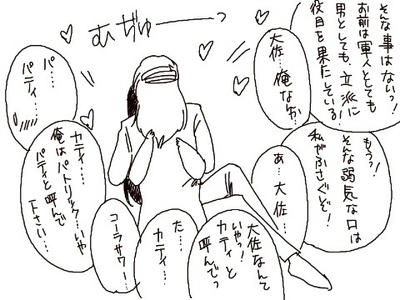 そんな事はないっ！
お前は軍人としても
男としても、立派に
役目を果たしている！
大佐…俺なんか…
むちゅーっ
もうっ！
そんな弱気な口は
私がふさぐぞ！
あ…大佐…
大佐なんて
いやっ！
カティと
呼んでっ
た…
カティ…
コーラサワー…
カティ……
俺はパトリック…いや
パティと呼んで
下さい…
パ…
パティ……